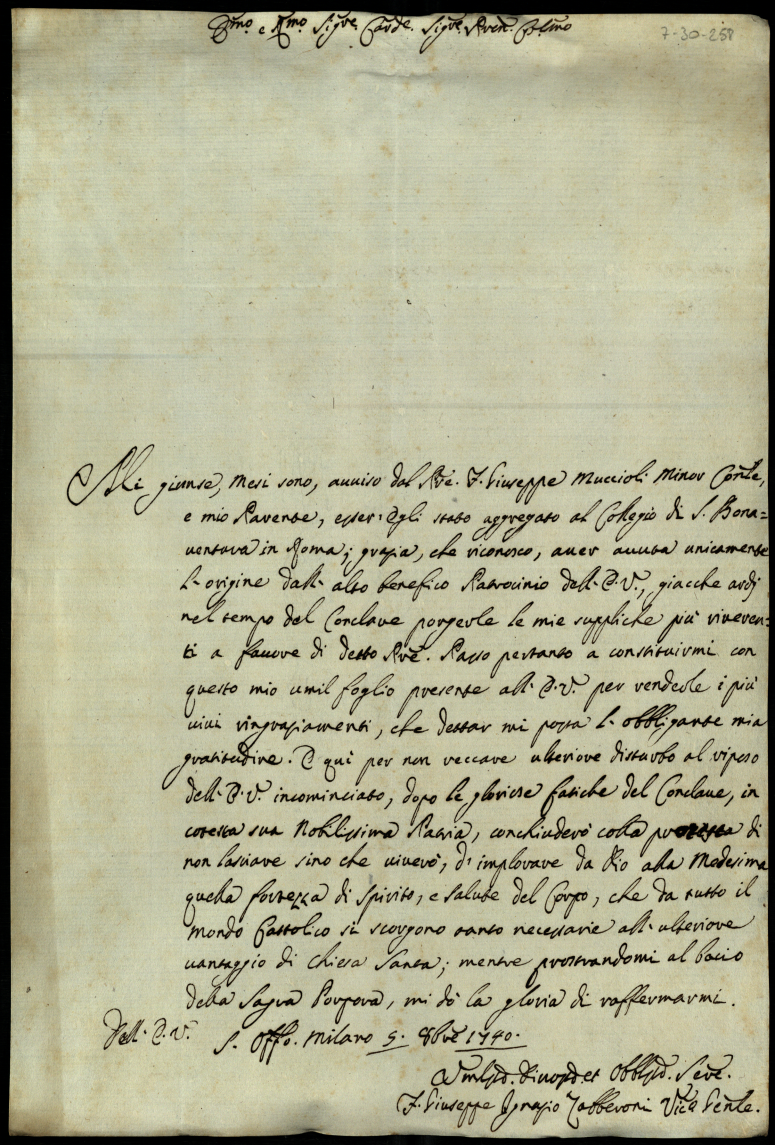 Emo. e Rmo. Sigre. Carde. Sigre. Pren. Colmo
7-30-258
Mi giunse, mesi sono, avviso dal Pre. F. Giuseppe Muccioli Minor Conle,
e mio Parente, esser' Egli stato aggregato al Collegio di S. Bona=
ventura in Roma; grazia, che riconosco, aver avuta unicamente
l'origine dall'alto benefico Patrocinio dell'E.V., giacche ardj
nel tempo del Conclave porgerle le mie suppliche più riveren=
ti a favore di detto Pre. Passo pertanto a constituirmi con
questo mio umil foglio presente all'E.V. per renderle i più
vivi ringraziamenti, che dettar mi possa l'obbligante mia
gratitudine. E quì per non reccare ulteriore disturbo al riposo
dell'E.V. incominciato, dopo le gloriose fatiche del Conclave, in
cotesta sua Nobilissima Patria, conchiuderò colla protesta di
non lasciare sino che viverò, d'implorare da Dio alla Medesima
quella fortezza di Spirito, e salute del Corpo, che da tutto il
mondo Cattolico si scorgono tanto necessarie all'ulteriore
vantaggio di Chiesa Santa; mentre prostrandomi al bacio
della Sagra Porpora, mi dò la gloria di raffermarmi.
Dell'E.V. S. Offo. Milano 5. 8bre 1740.
Umilmo. Divotmo. et Obblmo. Serve.
F. Giuseppe Ignazio Zabberoni Vico. Genle.